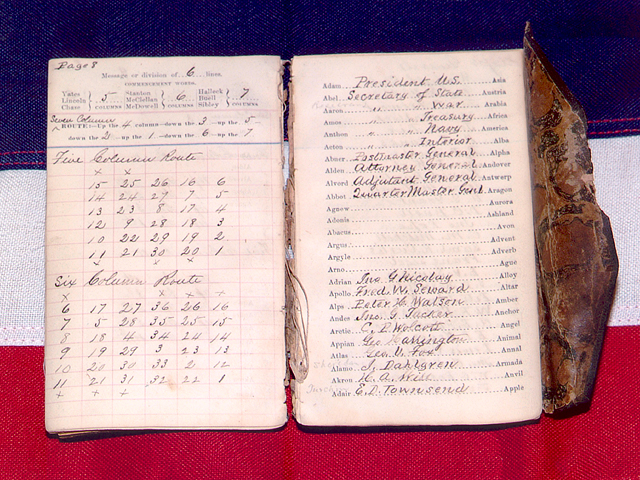 Page 8
Message or division of 6 lines.
COMMENCEMENT WORDS.
Yates Lincoln Chase 5 COLUMNS Stanton McClellan McDowell 6 COLUMNS Halleck Buell Sibley 7 COLUMNS
Seven Column
ROUTE:—Up the 4 column—down the 3—up the 5—
down the 2—up the 1—down the 6—up the 7.
Five Column Route
x x
15 25 26 16 6
14 24 27 7 5
13 23 8 17 4
12 9 28 18 3
10 22 29 19 2
11 21 30 20 1
Six Column Route
x x x x
6 17 27 36 26 16
7 5 28 35 25 15
8 18 4 34 24 14
9 19 29 3 23 13
10 20 30 33 2 12
11 21 31 32 22 1
+ + +
Adam President U.S. Asia
Abel Secretary of State Austria
Aaron " " War Arabia
Amos " " Treasury Africa
Anthon " " Navy America
Acton " " Interior Alba
Abner Postmaster General Alpha
Alden Attorney General Andover
Alvord Adjutant General Antwerp
Abbot Quarter Master Genl Aragon
Agnew Aurora
Adonis Ashland
Abacus Avon
Argus Advent
Argyle Adverb
Arno Ague
Adrian Jno G Nicolay Alloy
Apollo Fred. W. Seward Altar
Alps Peter H. Watson Amber
Andes Jno. G. Tucker Anchor
Arctic C. P. Wolcott Angel
Appian Geo Harrington Animal
Atlas Geo. V. Fox Annal
Alamo J. Dahlgren Armada
Akron H. A. Wise Anvil
Adair E. D. Townsend Apple